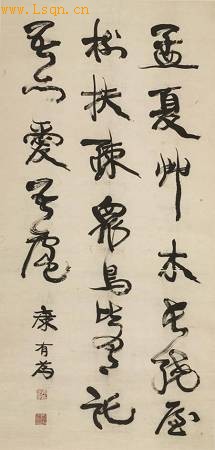 www.Lsqn.cn
孟夏艸木長繞屋
樹扶疎眾鳥欣有託
吾亦愛吾廬
康有為